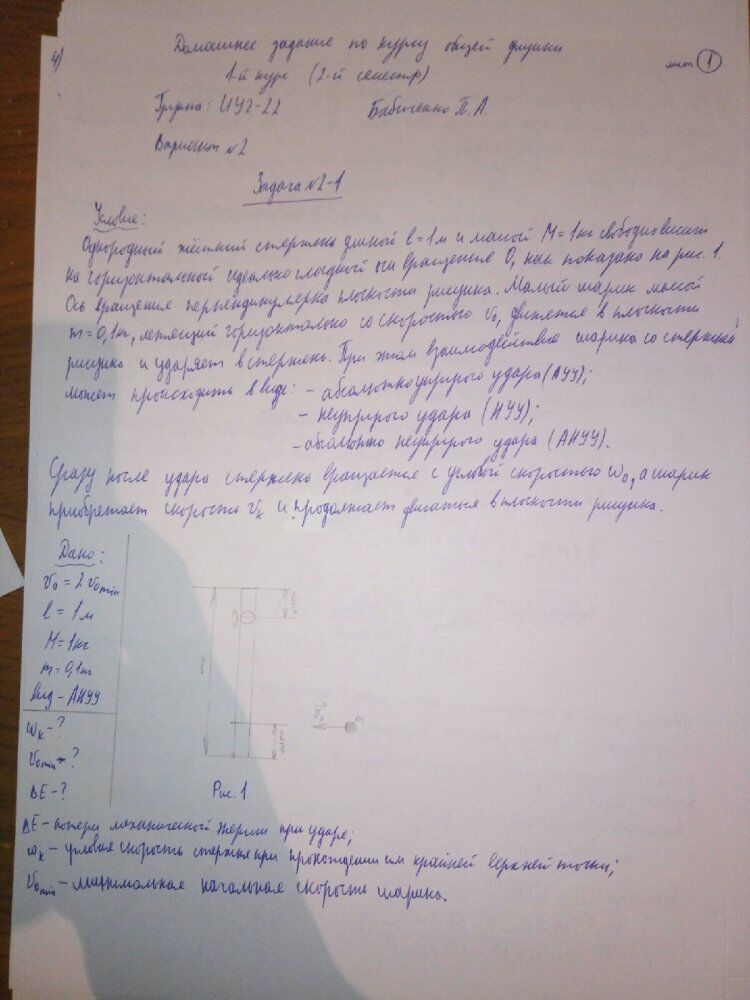 4)
Домашнее задание по курсу общей физики
лист 1
1-й курс (2-й семестр)
Группа: ИУ2-22 Бабиченко П.А.
Вариант №2
Задача №2-1
Условие:
Однородный жёсткий стержень длиной l = 1м и массой M = 1кг свободно висит
на горизонтальной идеально гладкой оси вращения O, как показано на рис. 1.
Ось вращения перпендикулярна плоскости рисунка. Малый шарик массой
m = 0,1кг, летящий горизонтально со скоростью v₀, движется в плоскости
рисунка и ударяет в стержень. При этом взаимодействие шарика со стержнем
может происходить в виде: - абсолютно упругого удара (АУУ);
- неупругого удара (НУУ);
- абсолютно неупругого удара (АНУУ).
Сразу после удара стержень вращается с угловой скоростью ω₀, а шарик
приобретает скорость vₖ и продолжает двигаться в плоскости рисунка.
Дано:
v₀ = 2 v₀min
l = 1м
M = 1кг
m = 0,1кг
вид - АНУУ
ωₖ - ?
v₀min - ?
ΔE - ?
O
l
v₀
m
Рис. 1
ΔE - потери механической энергии при ударе;
ωₖ - угловая скорость стержня при прохождении им крайней верхней точки;
v₀min - минимальная начальная скорость шарика.